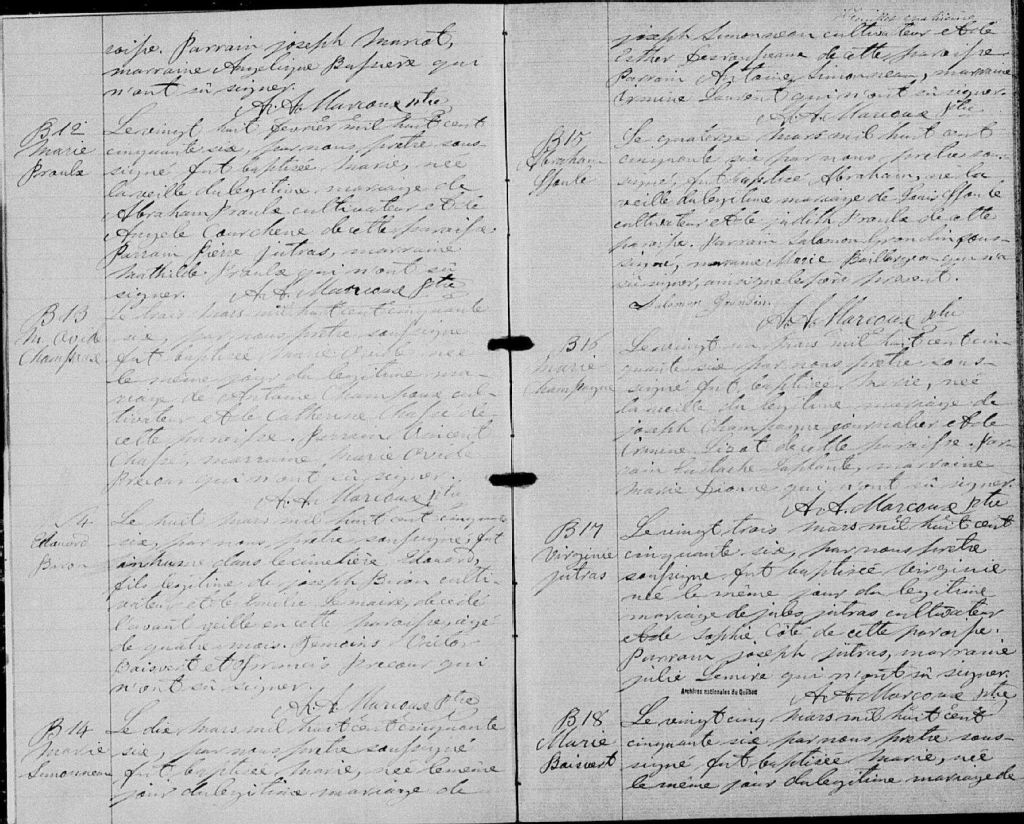 roisse. Parrain joseph Marcot,
marraine Angelique Bussiere qui
n'ont sû signer.
A. A. Marcoux ptre
B 12
Marie
Proulx
Le vingt huit fevrier mil huit cent
cinquante six, par nous prêtre sous-
signé fut baptisée Marie, née
la veille du legitime mariage de
Abraham Proulx cultivateur et de
Angele Courchene de cette paroisse.
Parrain Pierre jutras, marraine
Mathilde Proulx qui n'ont sû
signer. A. A. Marcoux Ptre
B 13
M. Ovide
Champoux
Le trois mars mil huit cent cinquante
six, par nous prêtre soussigné
fut baptisée Marie Ovide née
le même jour du legitime ma-
riage de Antoine Champoux cul-
tivateur et de Catherine Chassé de
cette paroisse. Parrain Vincent
Chassé, marraine Marie Ovide
Precour qui n'ont sû signer.
A. A. Marcoux ptre
S 4
Edouard
Le huit mars mil huit cent cinquante
six, par nous prêtre soussigné, fut
inhumé dans le cimetière Edouard,
fils legitime de joseph culti-
vateur et de Emélie Lemaire, decedé
l'avant veille en cette paroisse agé
de quatre mois. Temoins Victor
Boisvert et François Precour qui
n'ont sû signer.
A. A. Marcoux Ptre
B 14
Marie
Simonneau
Le dix mars mil huit cent cinquante
six, par nous prêtre soussigné
fut baptisée Marie, née le même
jour du legitime mariage de
joseph Simonneau cultivateur et de
Esther de cette paroisse
Parrain Antoine Simonneau, marraine
Ermine Laurent qui n'ont sû signer.
A. A. Marcoux Ptre
B 15
Abraham
Le quatorze mars mil huit cent
cinquante six par nous, prêtre sous-
signé, fut baptisé Abraham, né la
veille du legitime mariage de Louis
cultivateur et de judith Proulx de cette
paroisse. Parrain Salomon Grondin sous-
signé, marraine Marie Baillargeon qui n'a
sû signer, ainsi que le père present.
Salomon Grondin
A. A. Marcoux ptre
B 16
Marie
Champagne
Le vingt un mars mil huit cent cin-
quante six par nous prêtre sous-
signé fut baptisée Marie, née
la veille du legitime mariage de
joseph Champagne journalier et de
Ermine de cette paroisse. Par-
rain Eustache Laplante, marraine
Marie Dionne qui n'ont sû signer.
A. A. Marcoux Ptre
B 17
Virginie
jutras
Le vingt trois mars mil huit cent
cinquante six, par nous prêtre
soussigné fut baptisée Virginie
née le même jour du legitime
mariage de jules jutras cultivateur
et de Sophie Côté de cette paroisse.
Parrain joseph jutras, marraine
julie Lemire qui n'ont sû signer.
Archives nationales du Québec
A. A. Marcoux Ptre
B 18
Marie
Boisvert
Le vingt cinq mars mil huit cent
cinquante six par nous prêtre sous-
signé fut baptisée Marie, née
le même jour du legitime mariage de